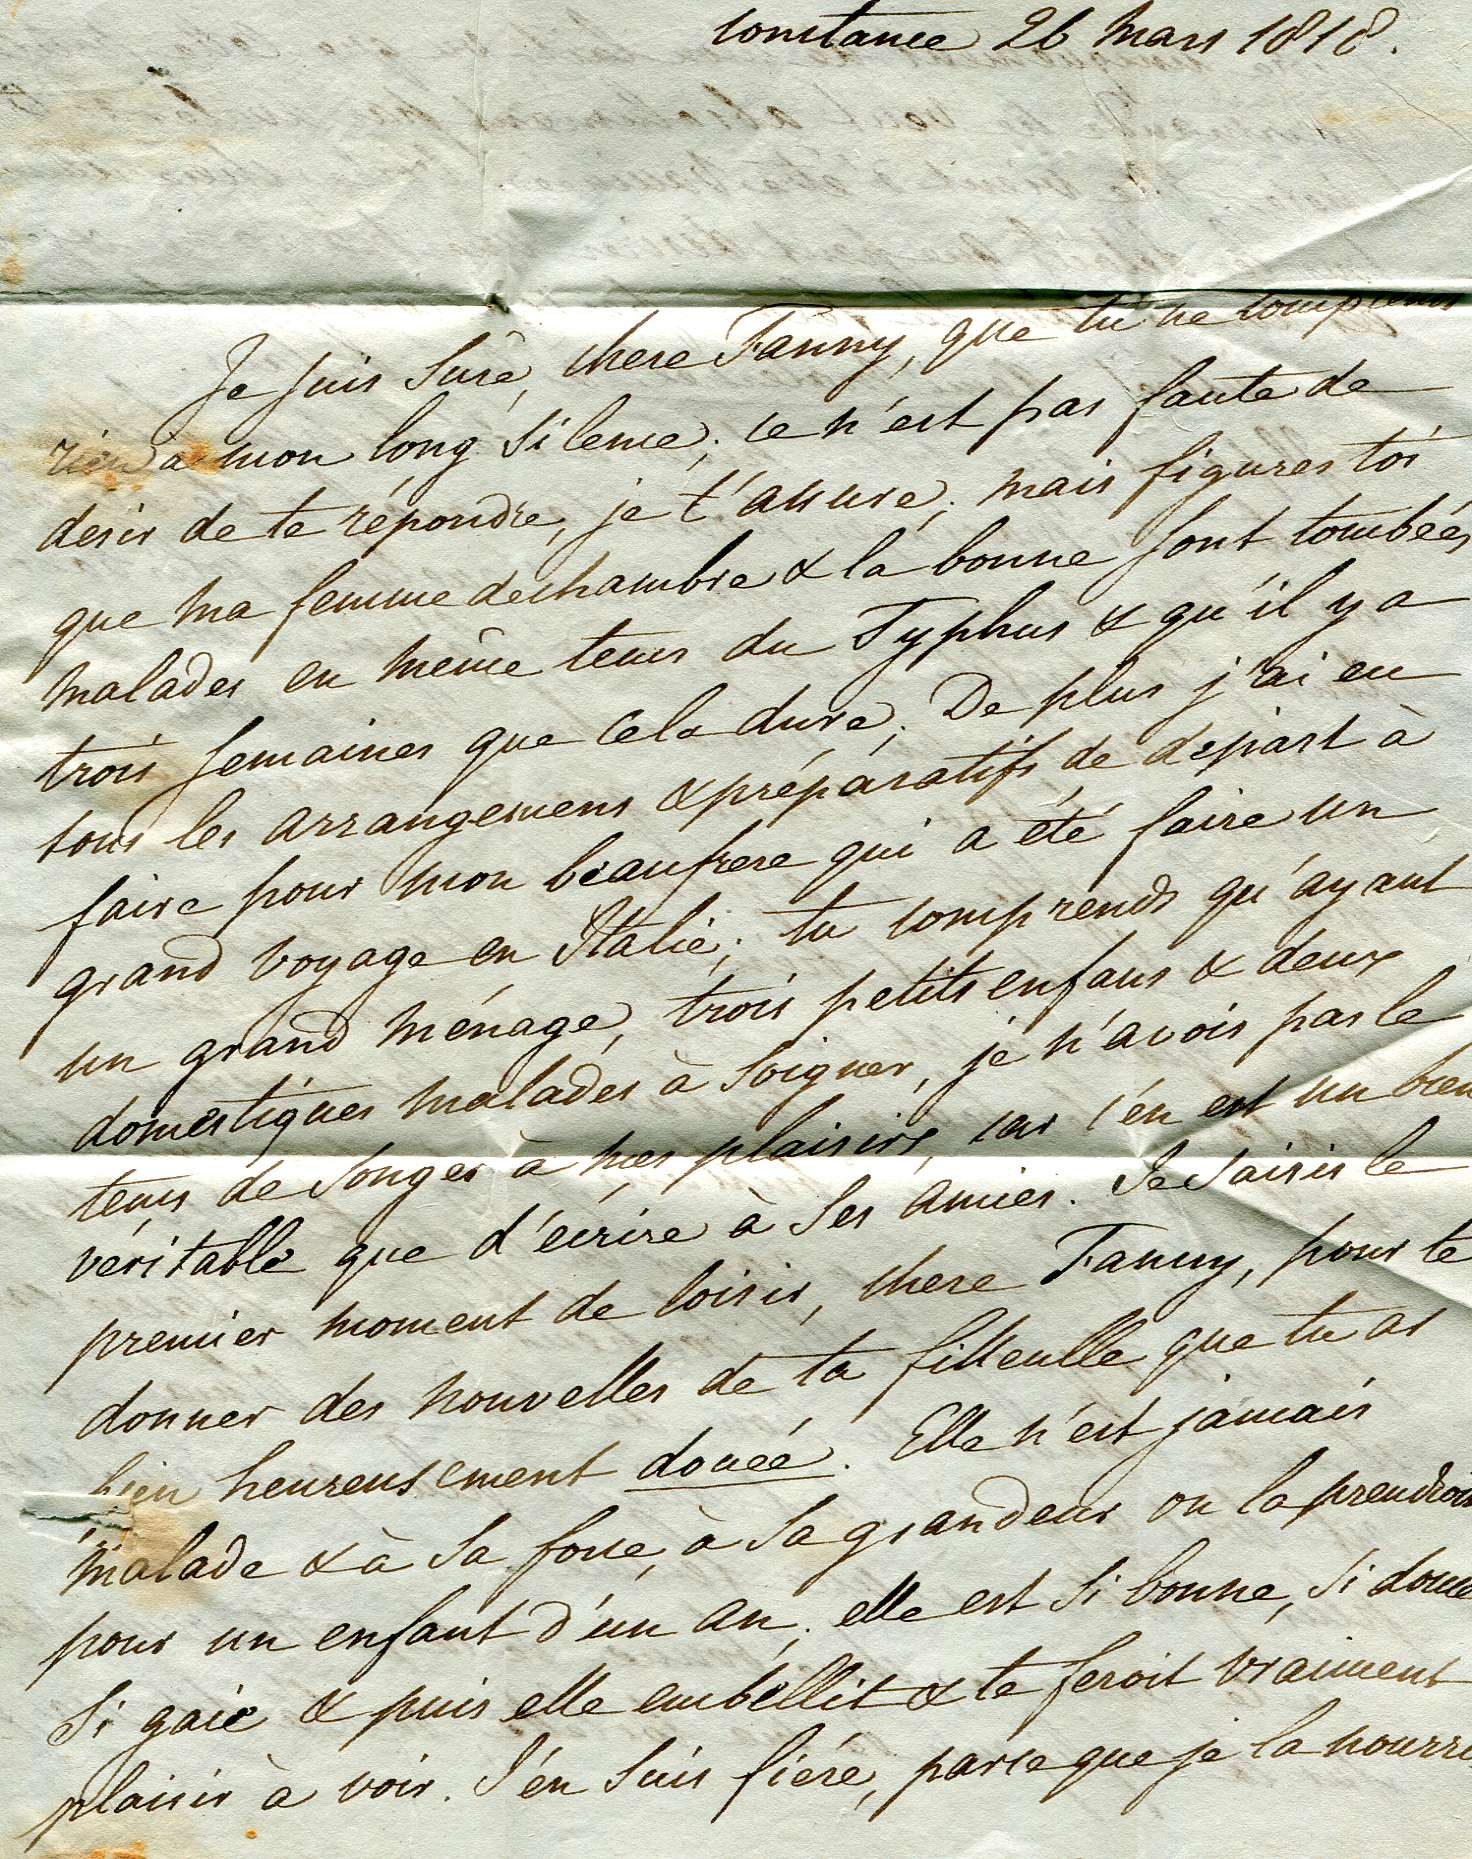 Constance 26 Mars 1818.
Je suis sûre, chere Fanny, que tu ne comprens
rien à mon long silence; ce n'est pas faute de
desir de te répondre, je t'assure; mais figures toi
que ma femme de chambre & la bonne sont tombées
malades en même tems du Typhus & qu'il y a
trois semaines que cela dure. De plus j'ai eu
tous les arrangemens & préparatifs de départ à
faire pour mon beaufrere qui a été faire un
grand voyage en Italie; tu comprends qu'ayant
un grand ménage, trois petits enfans & deux
domestiques malades à soigner, je n'avois pas le
tems de songer à mes plaisirs, car c'en est un bien
véritable que d'écrire à ses amies. Je saisis le
premier moment de loisir, chere Fanny, pour te
donner des nouvelles de ta filleulle que tu as
bien heureusement douée. Elle n'est jamais
malade & à sa force, à sa grandeur on la prendroit
pour un enfant d'un an; elle est si bonne, si douce
si gaie & puis elle embellit & te feroit vraiment
plaisir à voir. J'en suis fiére, parce que je la nourris